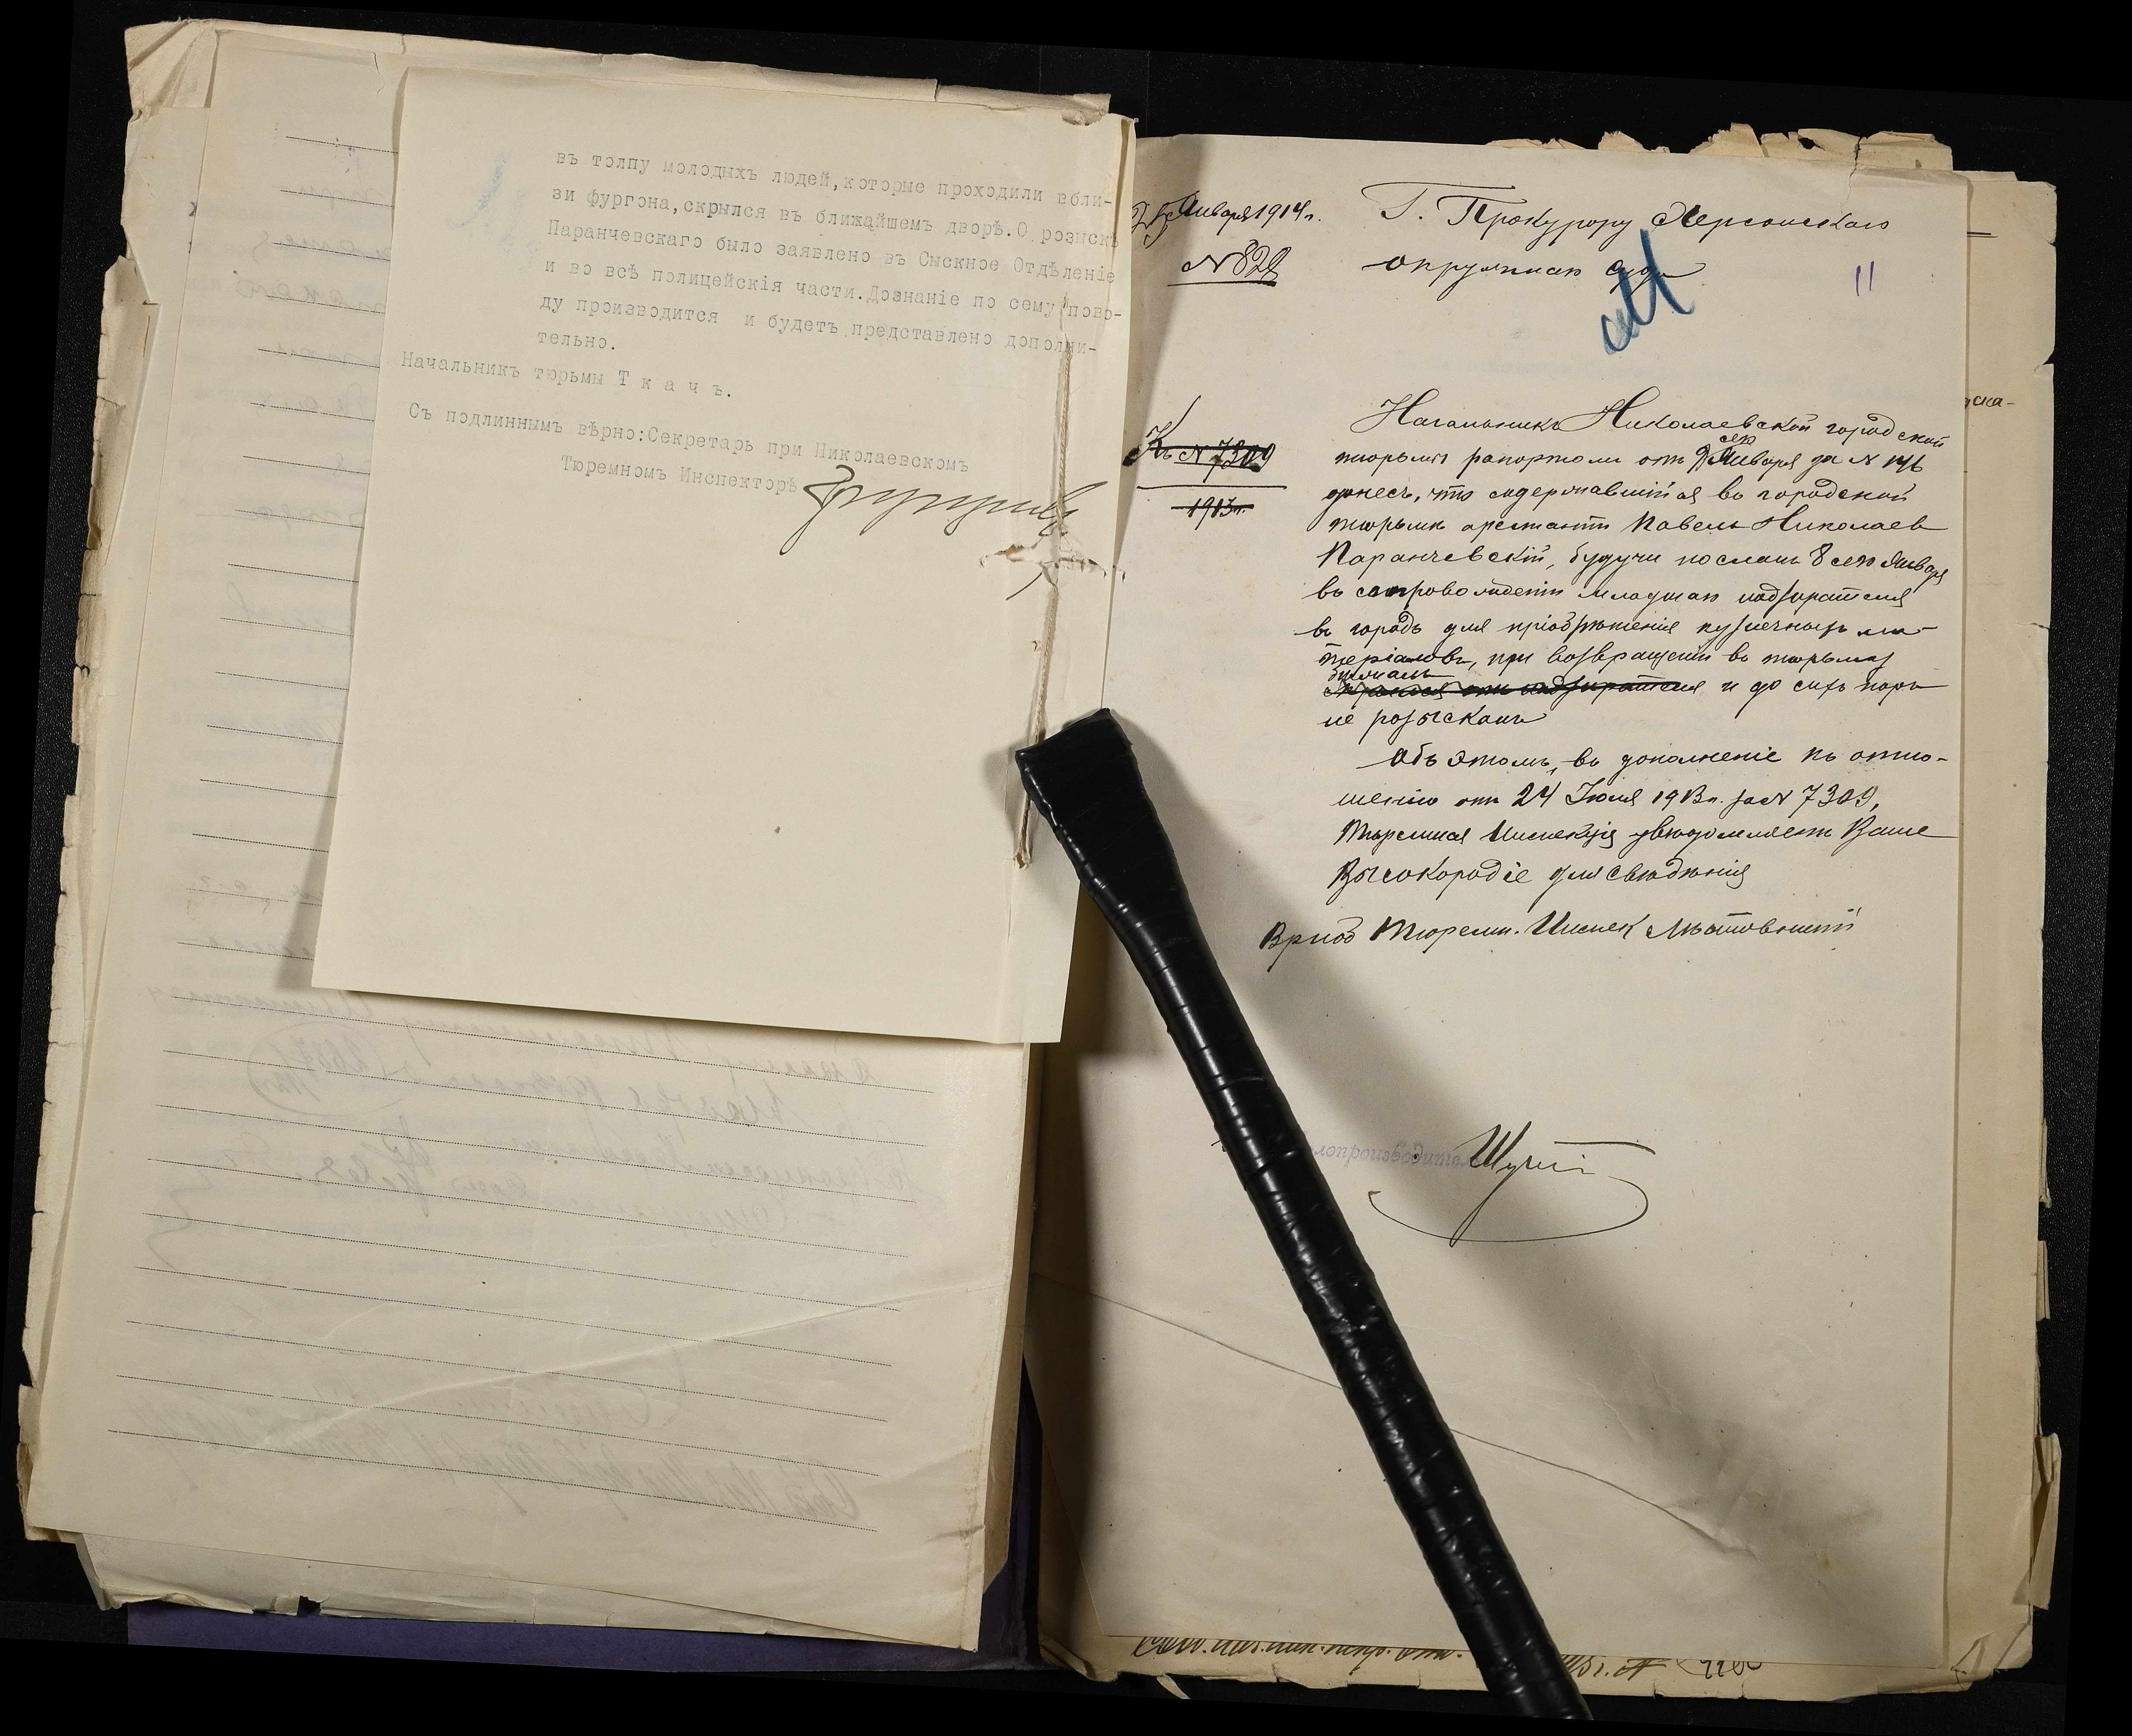 въ толпу молодыхъ людей,которые проходили вбли-
зи фургона,скрылся въ ближайшемъ дворѣ.О розыскѣ
Паранчевскаго было заявлено въ Сыскное Отдѣленіе
и во всѣ полицейскія части.Дознаніе по сему пово-
ду производится и будетъ представлено дополни-
тельно.
Начальникъ тюрьмы Т к а ч ъ.
Съ подлиннымъ вѣрно:Секретарь при Николаевскомъ
Тюремномъ Инспекторѣ
25 Января 1914 г.
N 828
Г. Прокурору Херсонскаго
окружнаго суда
11
Къ N 7309
1913 г.
Начальникъ Николаевской городской
тюрьмы рапортомъ отъ 9 сего Января за N 146
донесъ, что содержавшійся въ городской
тюрьмѣ арестантъ Павелъ Николаевъ
Паранчевскій, будучи посланъ 8 сего Января
въ сопровожденіи младшаго надзирателя
въ городъ для пріобрѣтенія кузнечныхъ ма-
теріаловъ, при возвращеніи въ тюрьму
бѣжалъ
скрылся отъ надзирателя и до сихъ поръ
не розысканъ
Объ этомъ, въ дополненіе къ отно-
шенію отъ 24 Іюля 1913 г. за N 7309,
Тюремная Инспекція увѣдомляетъ Ваше
Высокородіе для свѣдѣнія
Врид Тюремн. Инспек
лопроизводитель